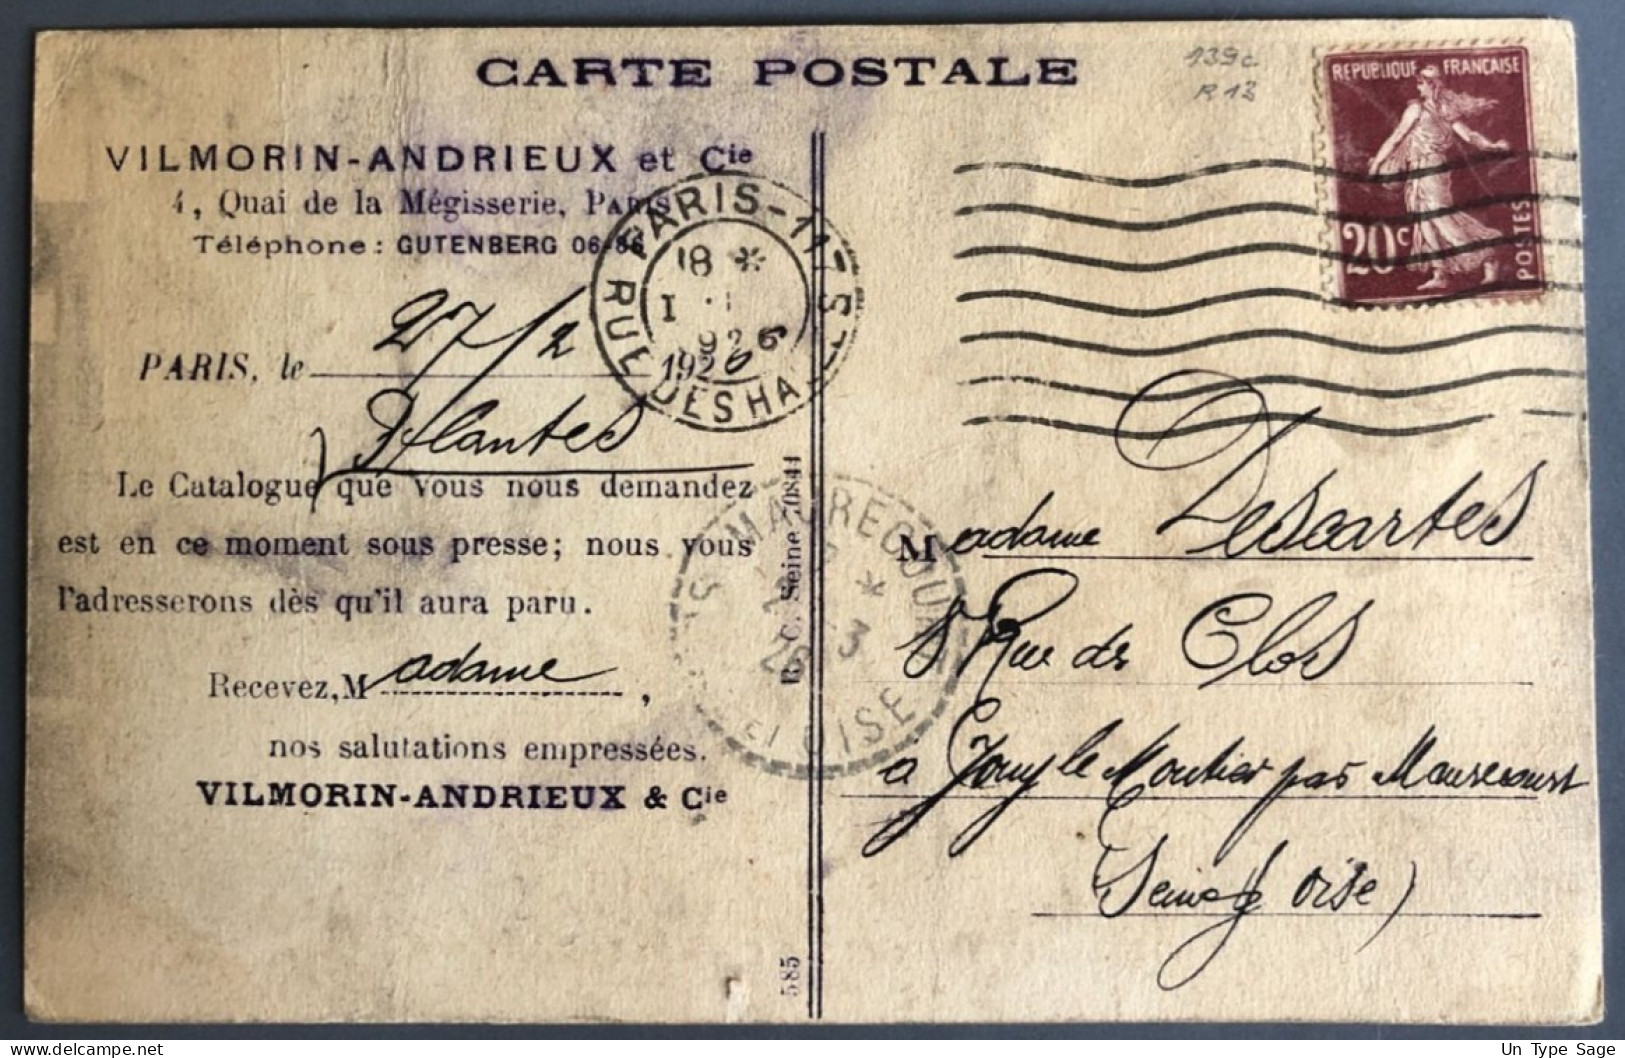 CARTE POSTALE
139c
R 13
REPUBLIQUE FRANÇAISE
20c
POSTES
VILMORIN-ANDRIEUX et Cie
4, Quai de la Mégisserie, PARIS
Téléphone : GUTENBERG 06-86
PARIS-11
RUE DESHA
18 *
I
1926
PARIS, le 27/2
Plantes
Le Catalogue que vous nous demandez
est en ce moment sous presse; nous vous
l'adresserons dès qu'il aura paru.
Recevez, Madame,
nos salutations empressées.
VILMORIN-ANDRIEUX & Cie
R. C. Seine
585
MAURECOURT
ET OISE
Madame Descartes
Rue de Clos
a Jouy le Moutier par Maurecourt
(Seine & Oise)
delcampe.net
Un Type Sage